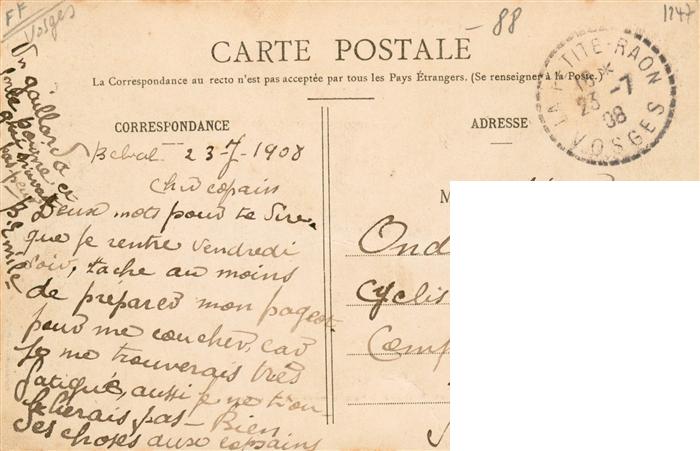 FF
Vosges
-88
1247
CARTE POSTALE
La Correspondance au recto n'est pas acceptée par tous les Pays Étrangers. (Se renseigner à la Poste.)
LA PETITE-RAON
23 -7
08
VOSGES
CORRESPONDANCE
ADRESSE
23-7-1908
Cher copain
Deux mots pour te dire
que je rentre vendredi
soir, tache au moins
de préparer mon pageot
pour me coucher, car
je me trouverais très
fatigué, aussi je ne
pas - Bien
des choses aux copains
Un gaillard à
poigne et
M
Ond
Cyclis
Comp